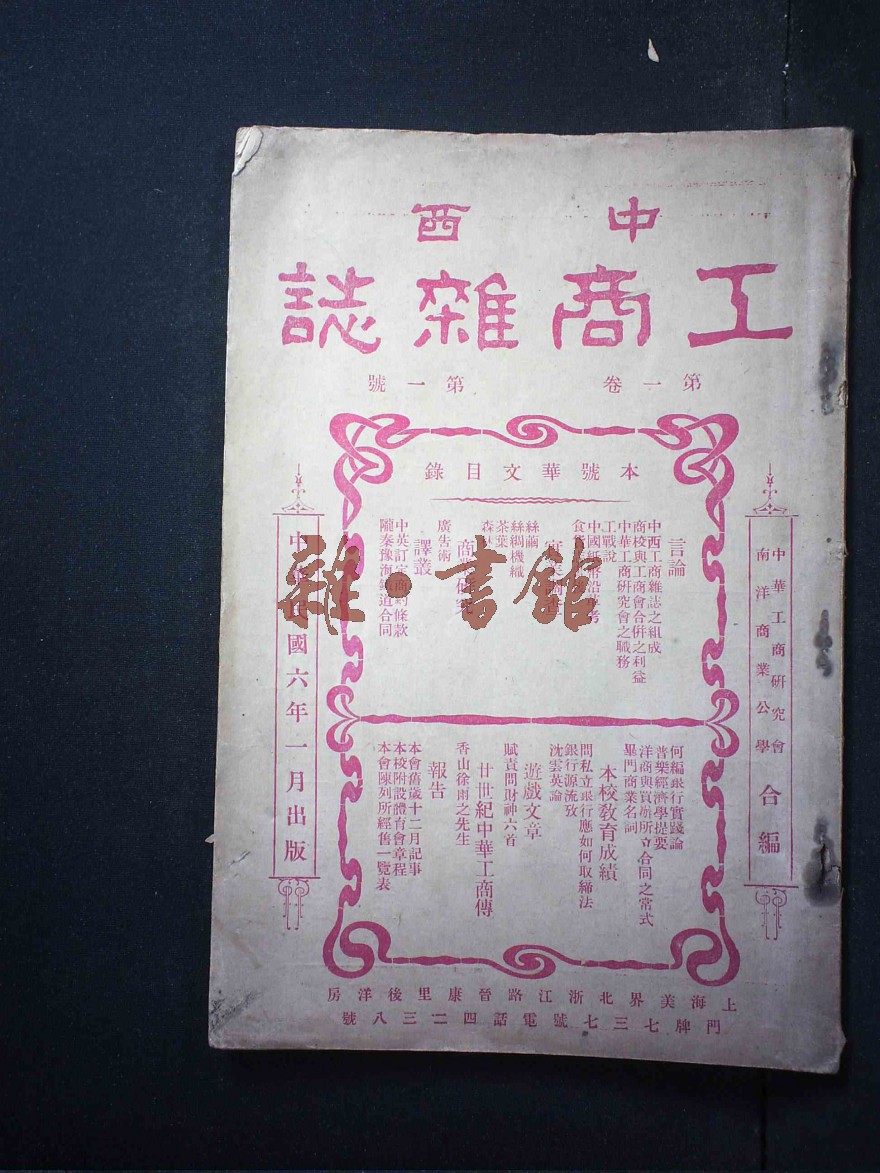 中西
工商雜誌
第一卷 第一號
中華工商研究會
南洋商業公學
合編
本號華文目錄
言論
中西工商雜誌之組成
商校與工商會合併之利益
中華工商研究會之職務
工戰說
中國紙幣沿革考
食
絲繭
絲綢機織
茶葉
森林
商業研究
廣告術
譯叢
中英訂定商約條款
隴秦豫海鐵道合同
何編銀行實踐論
普樂經濟學提要
洋商與買辦所立合同之常式
單門商業名詞
本校敎育成績
問私立銀行應如何取締法
銀行源流攷
沈雲英論
遊戲文章
賦責問財神六首
廿世紀中華工商傳
香山徐雨之先生
報告
本會舊歲十二月記事
本校附設體育會章程
本會陳列所經售一覽表
中華民國六年一月出版
上海美界北浙江路晉康里後洋房
門牌七三七號電話四二三八號
雜·書館